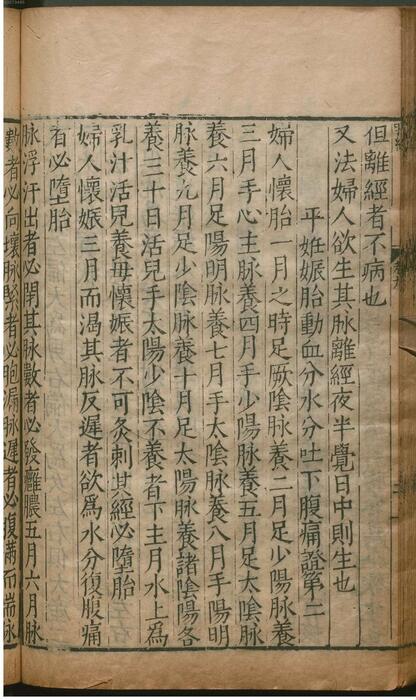 但離經者不病也
又法婦人欲生其脉離經夜半覺日中則生也
平姙娠胎動血分水分吐下腹痛證第二
婦人懷胎一月之時足厥陰脉養二月足少陽脉養
三月手心主脉養四月手少陽脉養五月足太陰脉
養六月足陽明脉養七月手太陰脉養八月手陽明
脉養九月足少陰脉養十月足太陽脉養諸陰陽各
養三十日活兒手太陽少陰不養者下主月水上爲
乳汁活兒養母懷娠者不可灸刺其經必墮胎
婦人懷娠三月而渴其脉反遲者欲爲水分復腹痛
者必墮胎
脉浮汗出者必閉其脉數者必發癰膿五月六月脉
數者必向壞脉緊者必胞漏脉遲者必復滿而喘脉